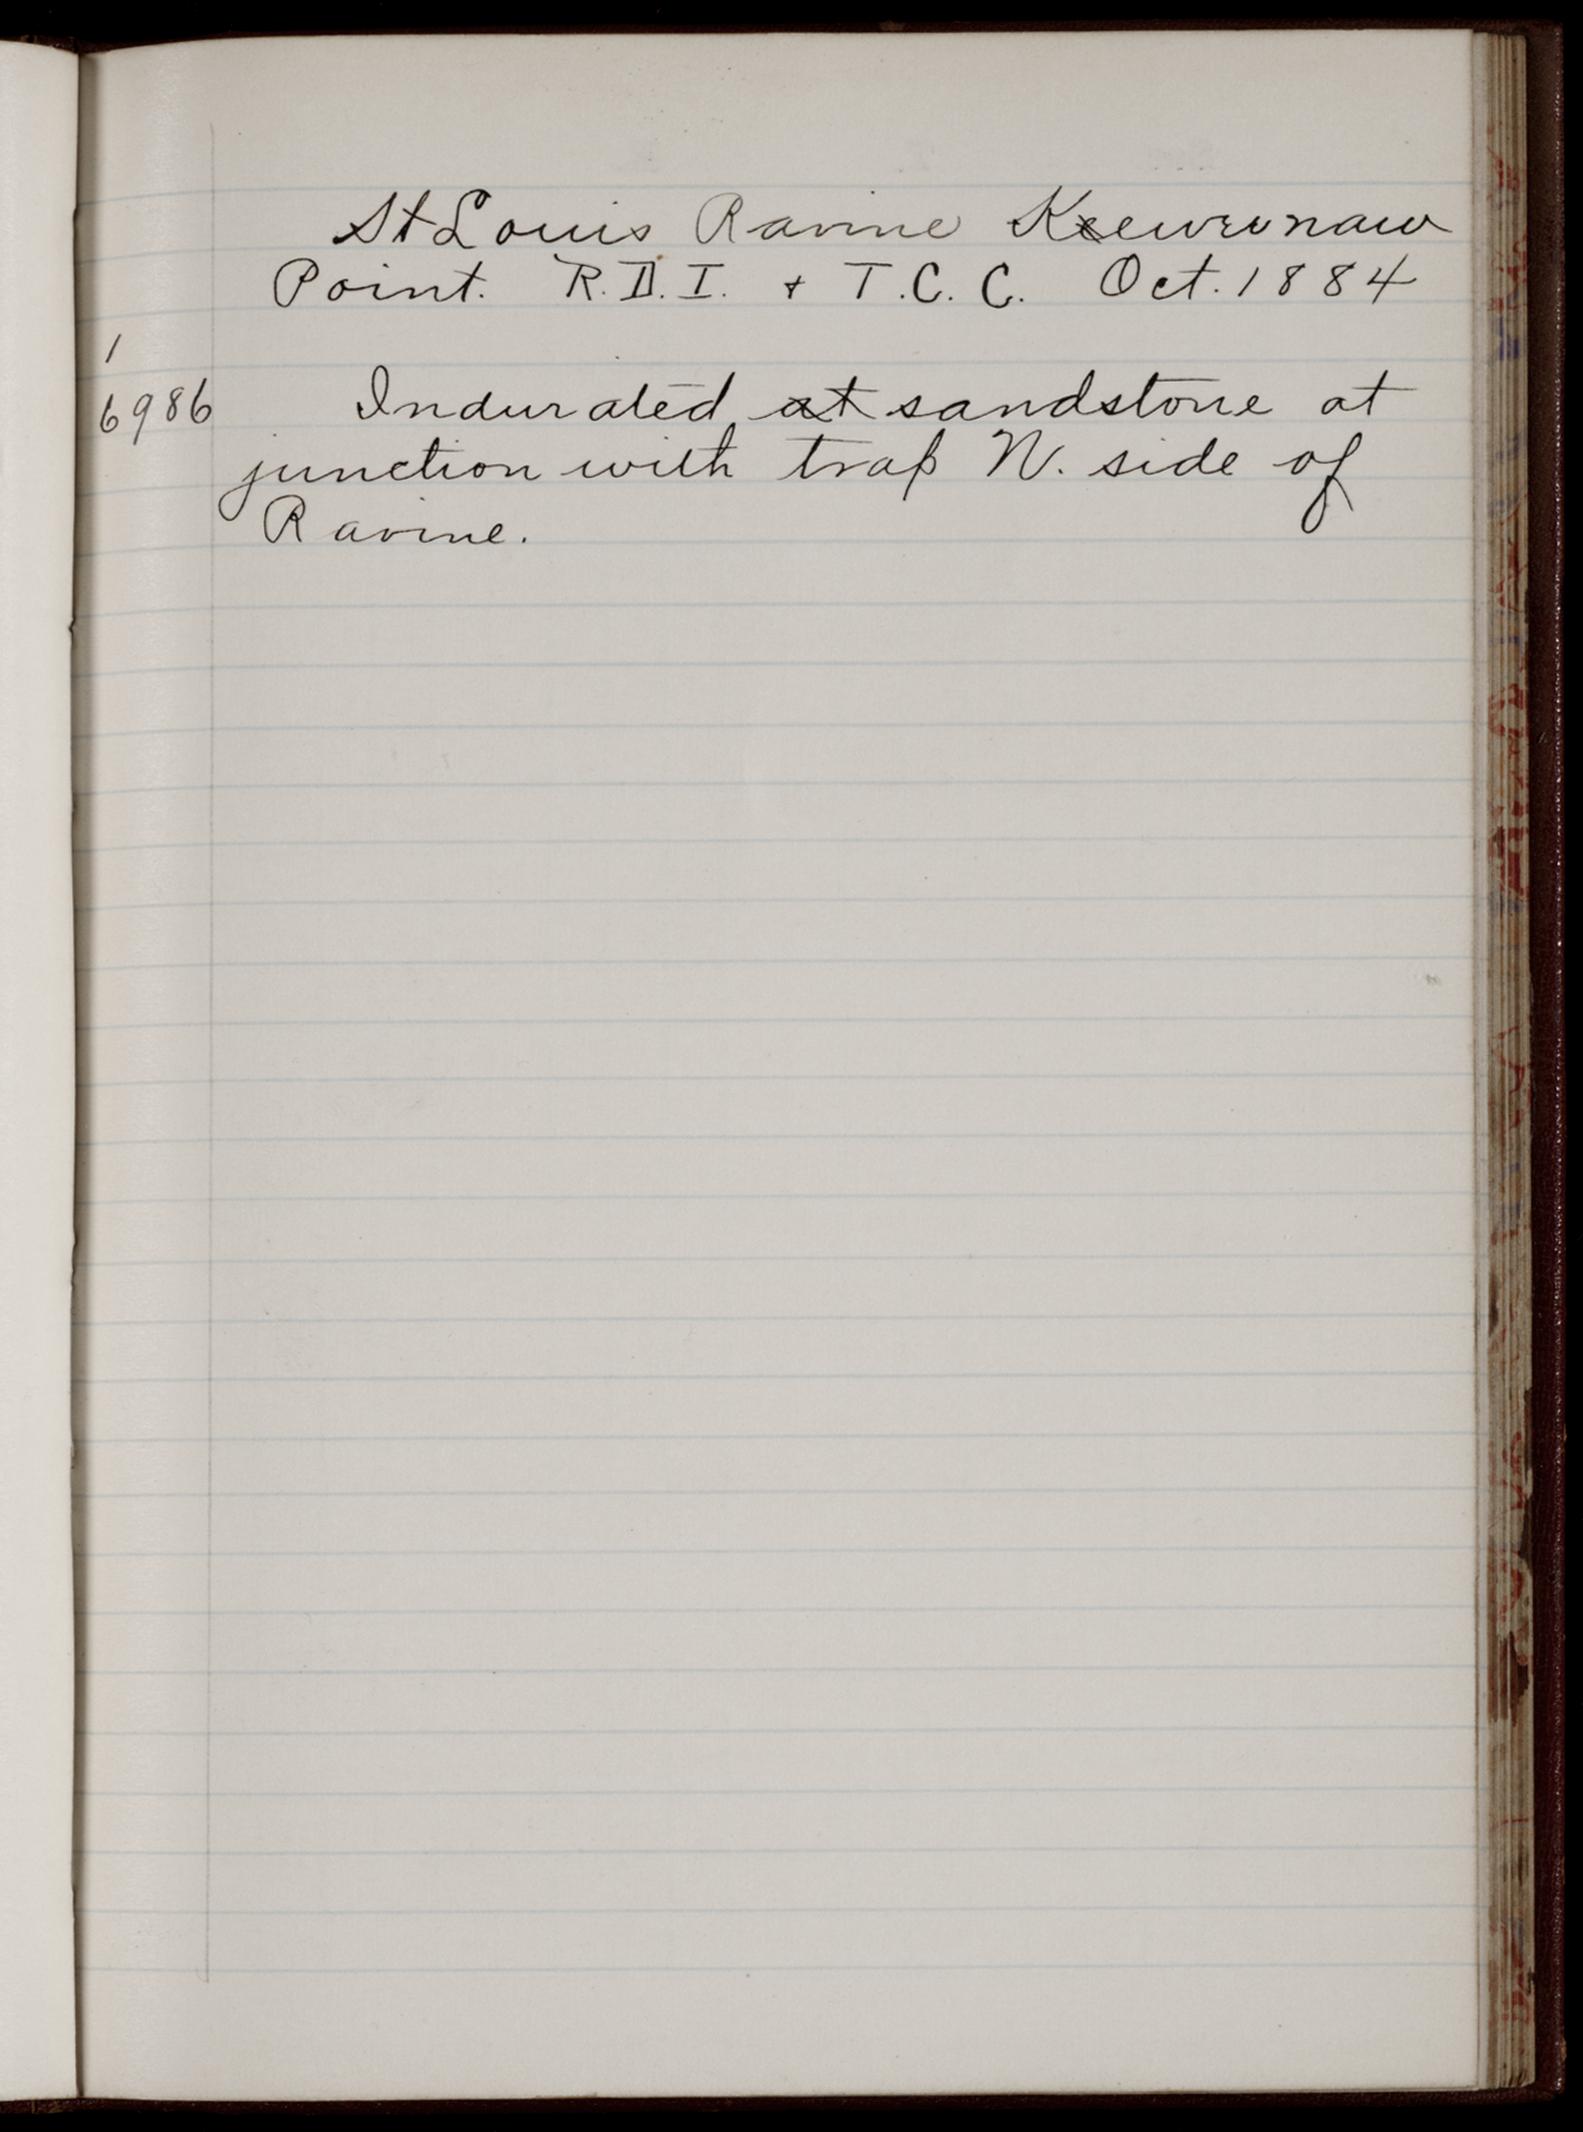 St Louis Ravine Keewenaw
Point. R.D.I. + T.C.C. Oct. 1884
1
6986 Indurated at sandstone at
junction with trap N. side of
Ravine.